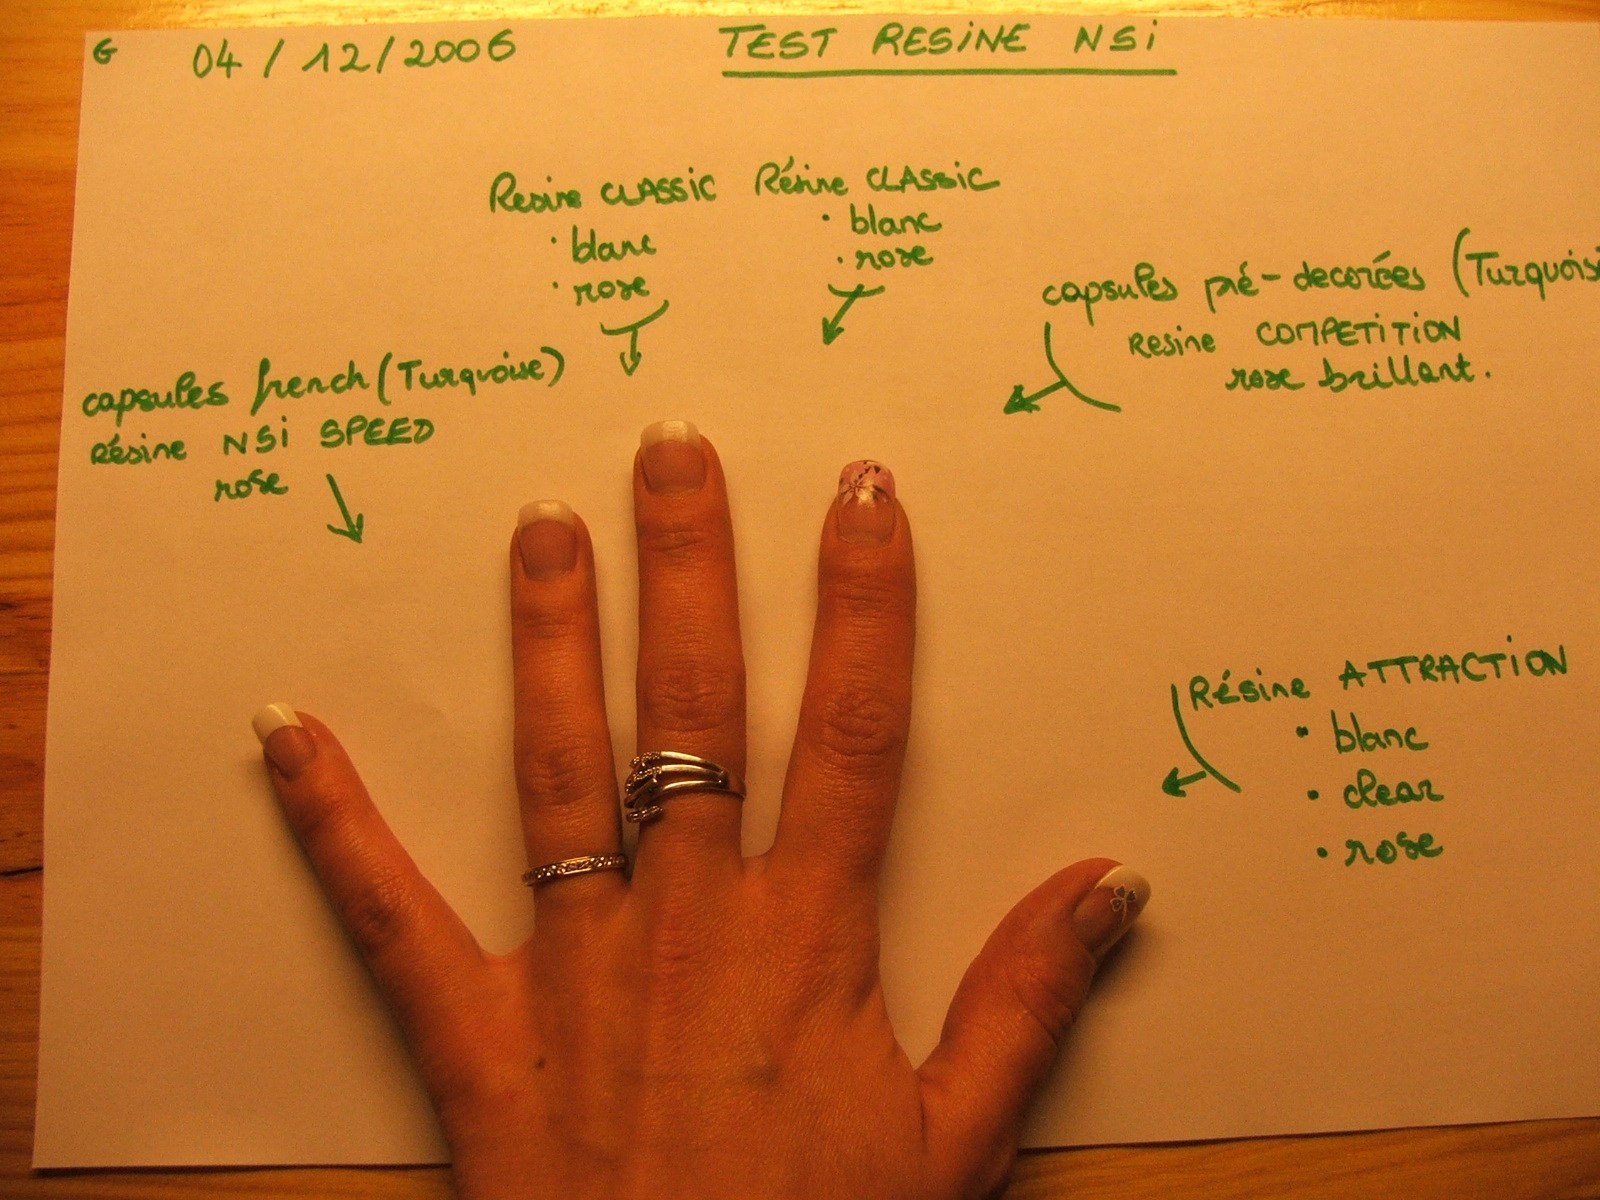 G 04/12/2006 TEST RESINE NSi
Resine CLASSIC
• blanc
• rose
Résine CLASSIC
• blanc
• rose
capsules pré-decorées (Turquois
Resine COMPETITION
rose brillant.
capsules french (Turquoise)
Résine NSi SPEED
rose
Résine ATTRACTION
• blanc
• clear
• rose